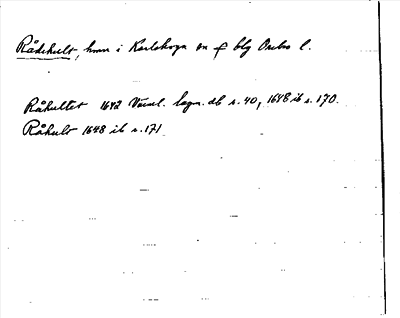 Rådehult, hmn i Karlskoga sn o f blg Örebro l.
Råhultet 1642 Värml. lagm. db s. 40, 1648 ib s. 170.
Råhult 1648 ib s. 171